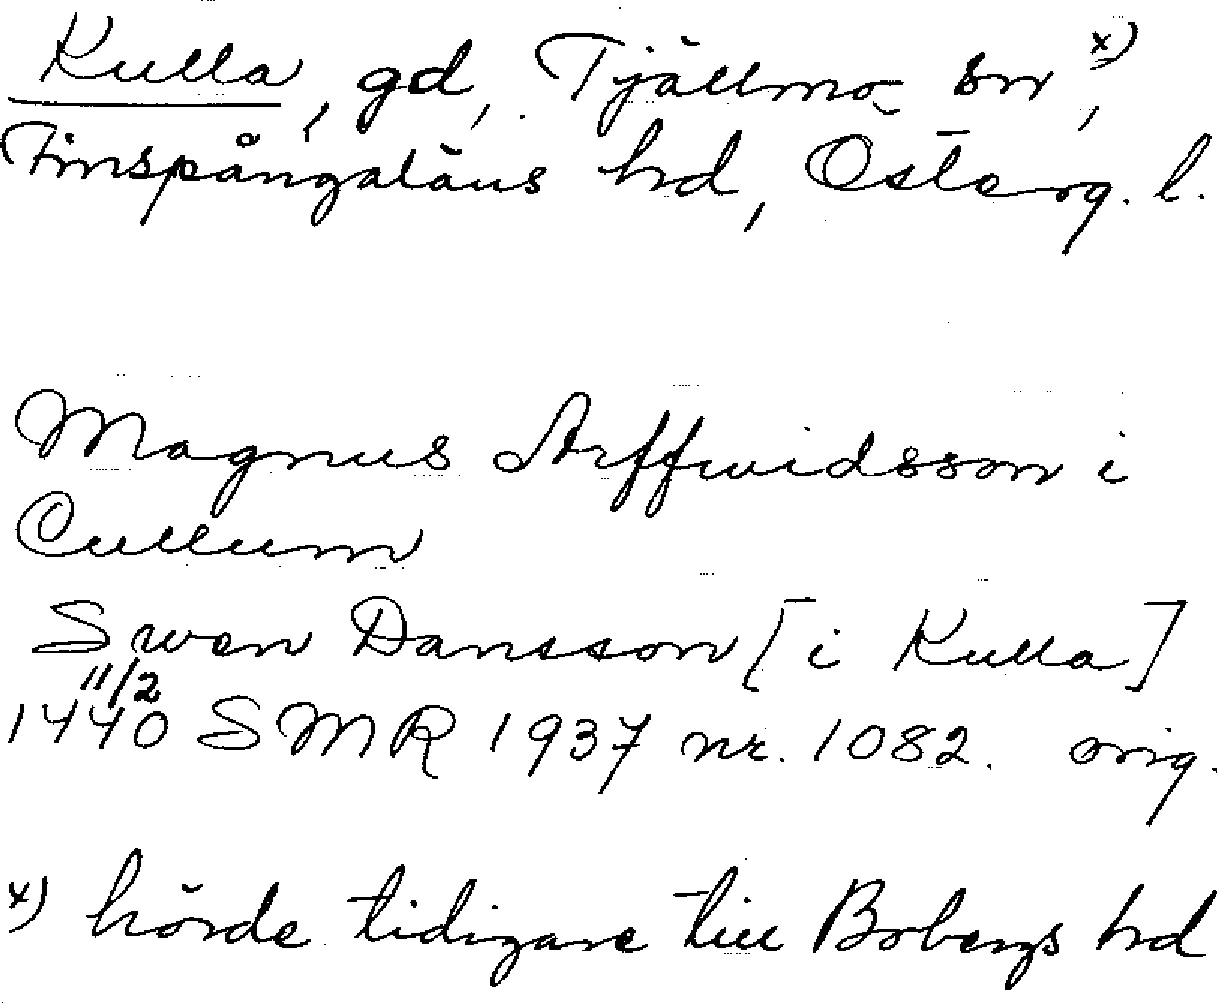 Kulla, gd, Tjällmo sn x),
Finspångaläns hrd, Österg. l.
Magnus Arffwidsson i
Cullum
Swen Dansson [i Kulla]
11/2
1440 SMR 1937 nr. 1082. orig.
x) hörde tidigare till Bobergs hrd